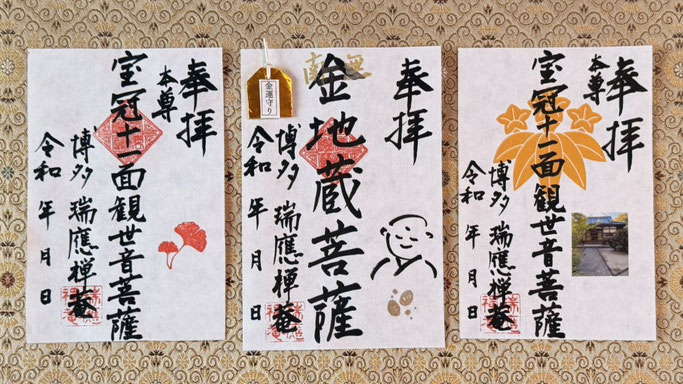 奉拝
本尊
宝冠十一面観世音菩薩
博多 瑞應禅菴
令和 年 月 日
奉拝
南無
金地蔵菩薩
金運守り
博多 瑞應禅菴
令和 年 月 日
奉拝
本尊
宝冠十一面観世音菩薩
博多 瑞應禅菴
令和 年 月 日